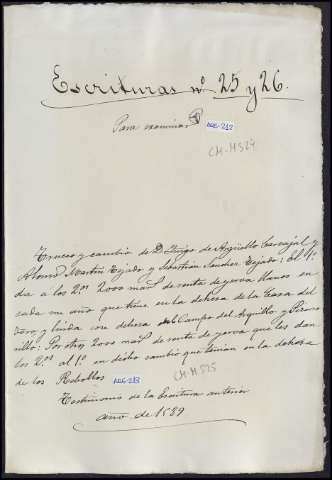 Escrituras nº 25 y 26.
Para examinar
AGG-212
CM-M 524
Trueco y cambio de D. Iñigo de Argüello Carvajal y
Alonso Martin Tejado y Sebastian Sanchez Tejado: el 1º
da á los 2ºs 2000 mas de renta de yerva llanos en
cada un año que tiene en la dehesa de la Casa del
y linda con dehesa del Campo del Arquillo y
Por otros 2000 mas de renta de yerva que les dan
los 2ºs al 1º en dicho cambio que tenian en la dehesa
de los Rebollos
AGG-213
CM-M 525
Testimonio de la Escritura anterior
año de 1589